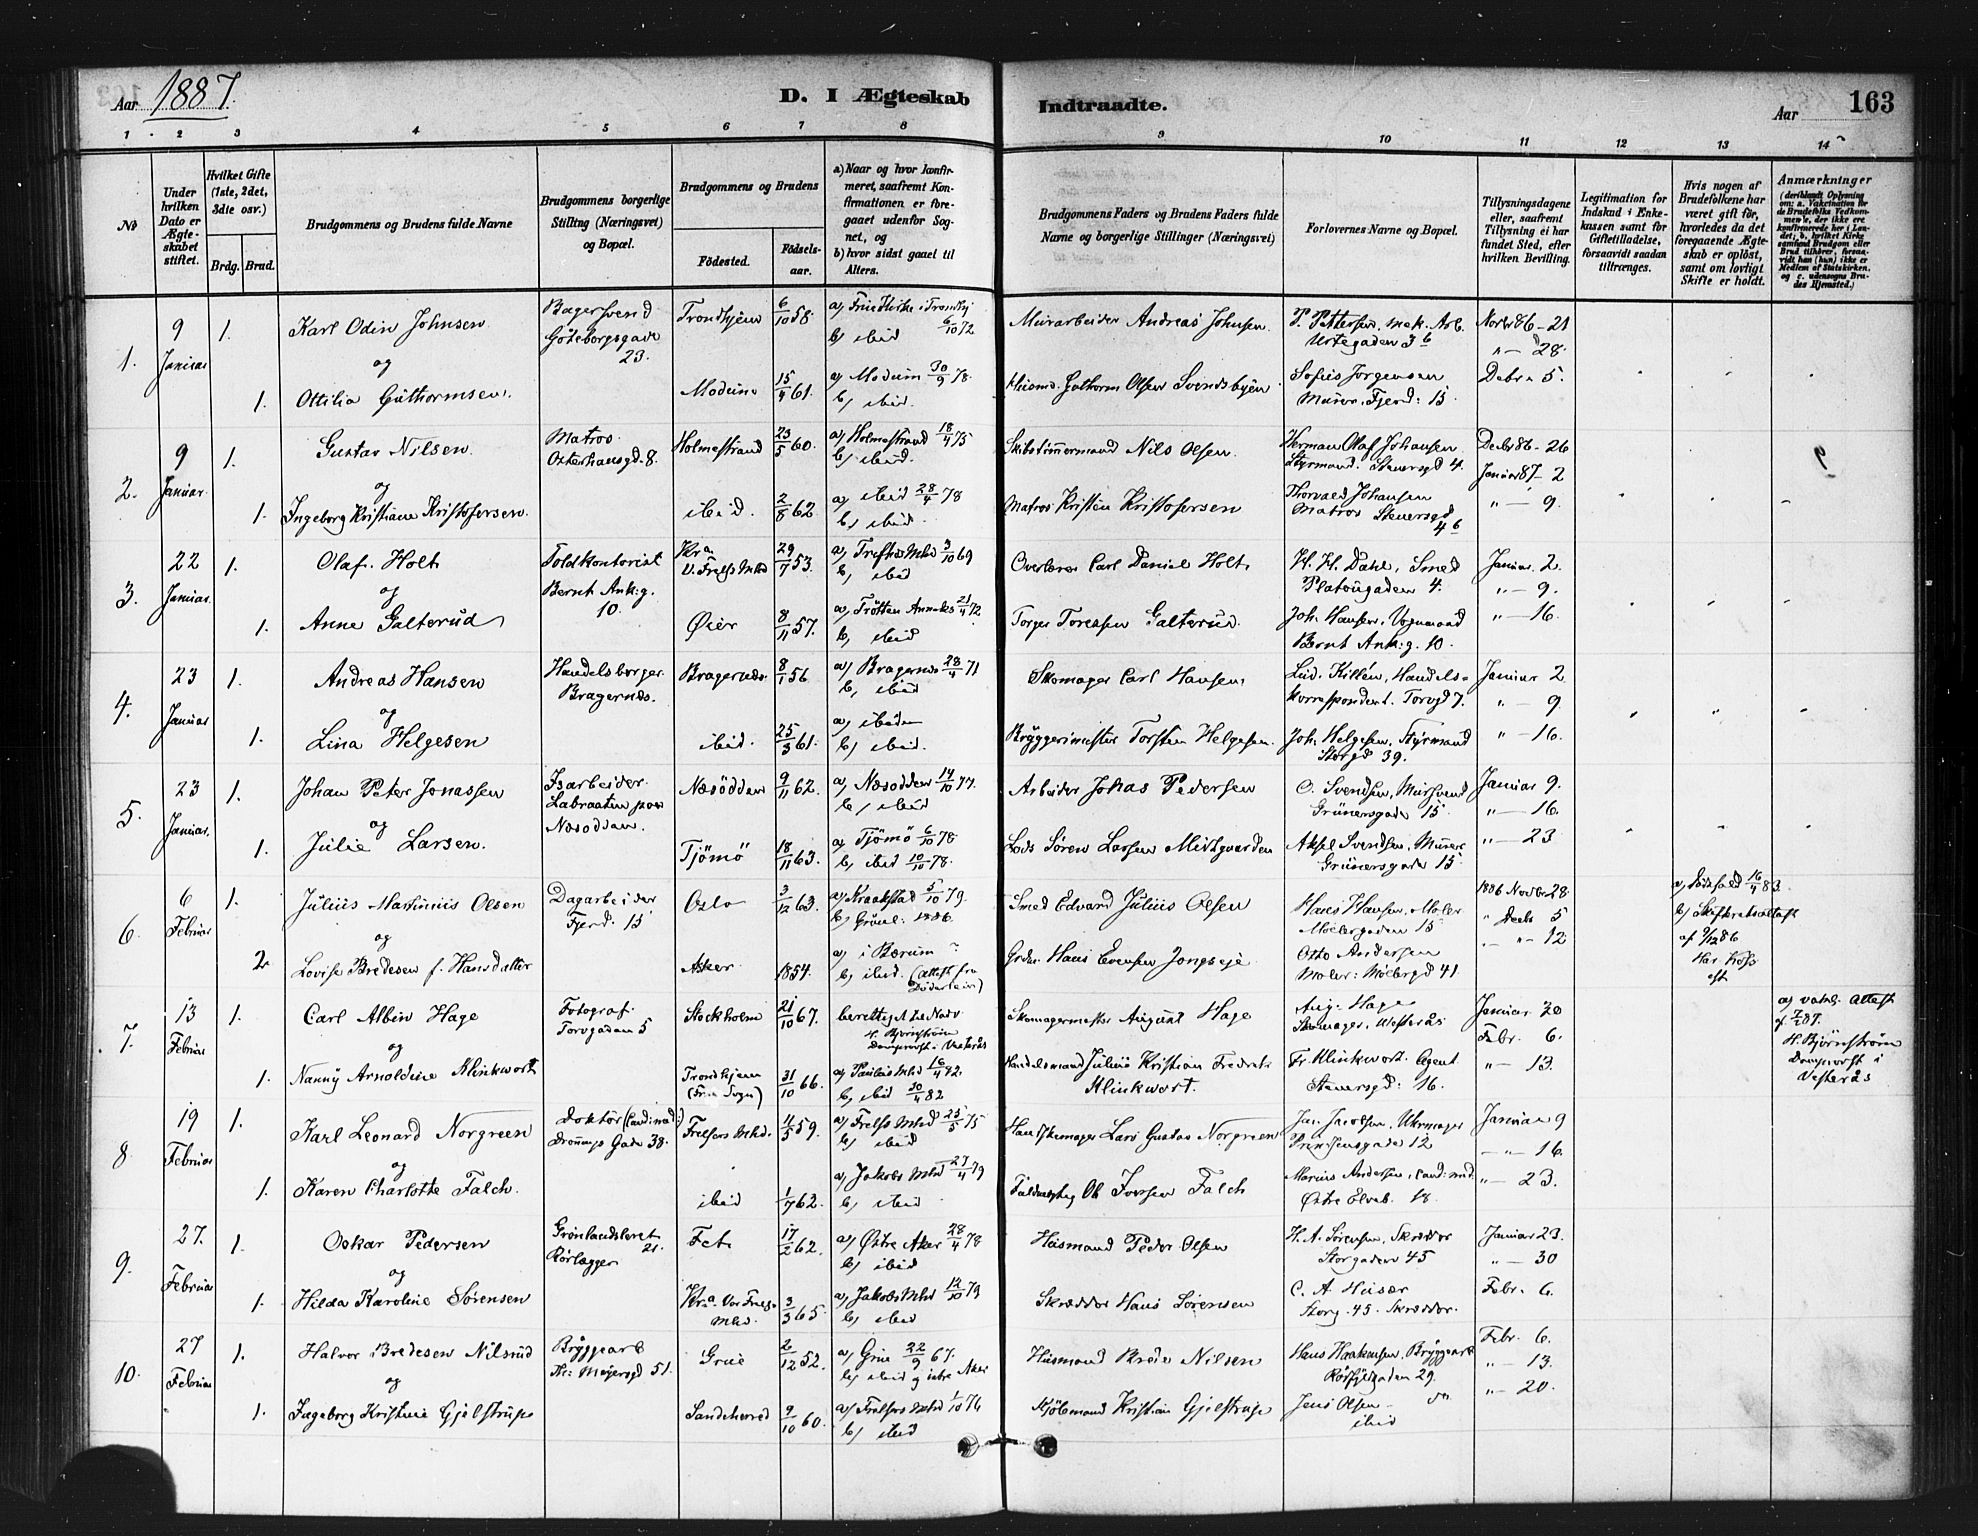 Aar 1887.
D. I Ægteskab
Indtraadte.
Aar
163
1 2 3 4 5 6 7 8 9 10 11 12 13 14
No
Under hvilken Dato er Ægteskabet stiftet.
Hvilket Gifte (1ste, 2det, 3die osv.)
Brdg. Brud.
Brudgommens og Brudens fulde Navne
Brudgommens borgerlige Stilling (Næringsvei) og Bopæl.
Brudgommens og Brudens
Födested.
Födsels-aar.
a) Naar og hvor konfirmeret, saafremt Konfirmationen er foregaaet udenfor Sognet, og
b) hvor sidst gaaet til Alters.
Brudgommens Faders og Brudens Faders fulde Navne og borgerlige Stillinger (Næringsvei)
Forlovernes Navne og Bopæl.
Tillysningsdagene eller, saafremt Tillysning ei har fundet Sted, efter hvilken Bevilling.
Legitimation for Indskud i Enkekassen samt for Giftetilladelse, forsaavidt saadan tiltrænges.
Hvis nogen af Brudefolkene har været gift för, hvorledes da det foregaaende Ægteskab er oplöst, samt om lovligt Skifte er holdt.
Anmærkninger
1. 9 Januar 1. Karl Odin Johnsen Bagersvend Göteborgsgade 23. Trondhjem 6/10 58. a) Frue Kirke i Trondhj 6/10 72 b) ibid Murarbeider Andreas Johnsen P. Pettersen, mek. Arb. Urtegaden 36 Novbr 86 - 21 " - 28.
og
1. Ottilia Guthormsen. Modum 15/4 61. a) Modum 30/9 78. b) ibid. Husmd. Guthorm Olsen Svendsbyen Sofus Jorgensen Murer, Fjerd: 15 Debr. 5.
2. 9 Januar. 1. Gustav Nilsen Matros Osterhausgd. 8. Holmestrand 23/5 60. a) Holmestrand 18/4 75 b) ibid. Skibstömmermand Nils Olsen. Herman Olaf Johansen Styrmand. Stenersgd 4. Decbr 86 - 26 Januar 87 - 2
og
1. Ingeborg Kristiane Kristofersen. ibid. 2/8 62 a) ibid 28/4 78 b) ibid Matros Kristen Kristofersen Thorvald Johansen Matros Stenersgd 46 " - 9.
3. 22 Januar. 1. Olaf Holt Toldkontorist Bernt Ank:g. 10. Kra V. Frels Mhd 29/7 53. a) Trefk Mhd 3/10 69 b) ibid Overlærer Carl Daniel Holt. H. H. Dahl, Smed Platousgaden 4. Januar 2. " - 9.
og
1. Anne Galterud Öier 8/11 57. a) Trötten Anneks 21/4 72 b) ibid Torger Toresen Galterud. Joh. Hansen, Vognmand Bernt Ank:g. 10. " - 16.
4. 23 Januar 1. Andreas Hansen Handelsborger Bragernæs. Bragernæs. 8/1 56 a) Bragernæs 28/4 71 b) ibid Skomager Carl Hansen. Lud. Killén, Handels-korrespondent. Torvgd 7. Januar 2 " - 9
og
1. Lina Helgesen ibid. 25/3 61. a) ibidem b) ibid. Bryggerimester Torsten Helgesen. Joh. Helgesen, Styrmand Storgd 39. " - 16.
5. 23 Januar. 1. Johan Peter Jonassen Isarbeider Labraaten paa Næsodden. Næsodden 9/11 62. a) Næsodden 14/10 77. b) ibid Arbeider Johas Pedersen O. Svendsen, Mursvend Grünersgade 15 Januar 9. " - 16.
og
1. Julie Larsen. Tjömö 18/11 63. a) Tjömö 6/10 78 b) ibid 10/10 78. Lods Sören Larsen Midtgaarden Aksel Svendsen, Murer Grünersgade 15 " - 23
6. 6 Februar 1. Julius Martinius Olsen Dagarbeider Fjerd. 15 Oslo 3/12 63. a) Kraakstad 5/10 79. b) Grönl. 1886. Smed Edvard Julius Olsen Hans Hansen, Maler Möllergaden 15 1886 Novbr 28. " Decbr 5 a) Dödsfald 16/4 83. b) Skifteretsattest af 9/12 86
og
2. Lovise Bredesen f. Hansdatter Asker 1854. a) i Bærum b) ibid. Grdm. Hans Evensen Jongseje Otto Andersen Maler: Möllergd 41. " - " 12
7. 13 Februar 1. Carl Albin Hage Fotograf Torvgaden 5 Stockholm 21/10 67. berettiget til Nadv. H. Björnström Domprovst i Vesterås Skomagermester August Hage Aug. Hage Skomager, Westerås Januar 30 Febr. 6. a) vakc. Attest af 7/2 87. H. Björnström Domprovst i Vesterås
og
1. Nanny Arnoldine Klinkwort Trondhjem (Frue Sogn) 31/10 66. a) Paulus Mhd 16/4 82. b) ibid 30/4 82 Handelsmand Julius Kristian Fredrik Klinkwort. Fr. Klinkwort. Agent Stenersgd: 16. " - 13.
8. 19 Februar 1. Karl Leonard Norgreen Doktor (Cand. med.) Dronnings Gade 38. Frelsers Mhd. 4/5 59. a) Frelsers Mhd 25/5 75 b) ibid Lars Gustav Norgreen Jac. Jacobsen, Uhrmager Prinsensgade 12 Januar 9 - " - 16.
og
1. Karen Charlotte Falch. ibid 1/7 62. a) Jakobs Mhd 27/4 79 b) ibid Ole Iversen Falch Marius Andersen, Cand. med. Østre Elveb. 18. " - 23.
9. 27. Februar 1. Oskar Pedersen Grönlandsleret 21. Rörlægger Fet 17/2 62. a) Østre Aker 28/4 78 b) ibid Husmand Peder Olsen H. A. Sörensen, Skrædder Storgaden 45 Januar 23. " - 30
og
1. Hilda Karoline Sörensen Kra. Vor Frels. Mhd. 3/3 65. a) Jakobs Mhd 12/10 79 b) ibid Skrædder Hans Sörensen C. A. Husær Storg. 45. Skrædder. Febr. 6.
10. 27 Februar 1. Halvor Bredesen Nilsrud Bryggearb N: Meyersgd 51. Grue 2/12 52. a) Grue 22/9 67. b) ibid Aker Husmand Brede Nilsen Hans Haakensen, Bryggearb 29. Febr. 6. " - 13.
og
1. Ingeborg Kristine Gjelstrup Sandeherred 9/10 60. a) Frelsers Mhd 1/10 76 b) ibid Kjöbmand Kristian Gjelstrup Jens Olsen ibid " - 20.